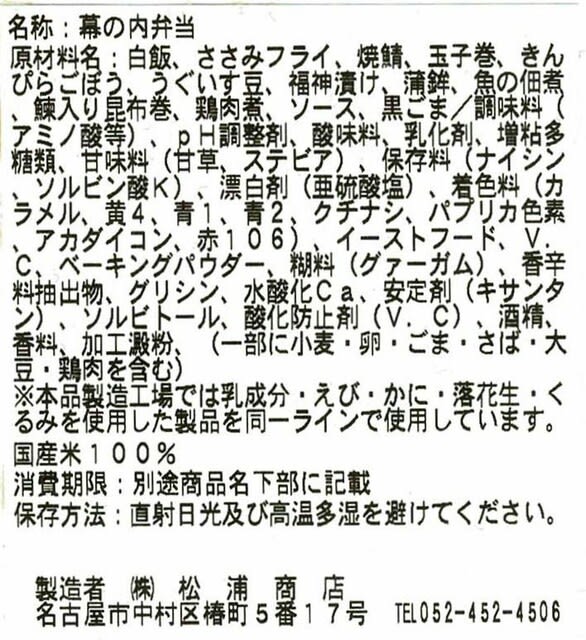 名称：幕の内弁当
原材料名：白飯、ささみフライ、焼鯖、玉子巻、きん
ぴらごぼう、うぐいす豆、福神漬け、蒲鉾、魚の佃煮
、鰊入り昆布巻、鶏肉煮、ソース、黒ごま／調味料（
アミノ酸等）、ｐＨ調整剤、酸味料、乳化剤、増粘多
糖類、甘味料（甘草、ステビア）、保存料（ナイシン
、ソルビン酸Ｋ）、漂白剤（亜硫酸塩）、着色料（カ
ラメル、黄４、青１、青２、クチナシ、パプリカ色素
、アカダイコン、赤１０６）、イーストフード、Ｖ．
Ｃ、ベーキングパウダー、糊料（グァーガム）、香辛
料抽出物、グリシン、水酸化Ｃａ、安定剤（キサンタ
ン）、ソルビトール、酸化防止剤（Ｖ．Ｃ）、酒精、
香料、加工澱粉、（一部に小麦・卵・ごま・さば・大
豆・鶏肉を含む）
※本品製造工場では乳成分・えび・かに・落花生・く
るみを使用した製品を同一ラインで使用しています。
国産米１００％
消費期限：別途商品名下部に記載
保存方法：直射日光及び高温多湿を避けてください。
製造者 ㈱ 松浦商店
名古屋市中村区椿町５番１７号 TEL052-452-4506